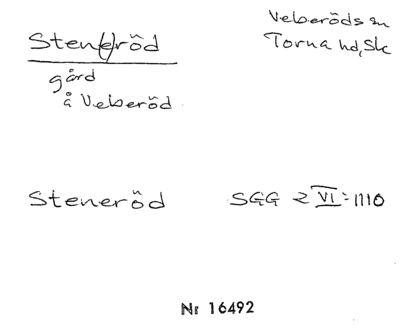 Sten(e)röd
Veberöds sn
Torna hd, Sk
gård
å Veberöd
Steneröd
SGG 2 VI:1110
Nr 16492